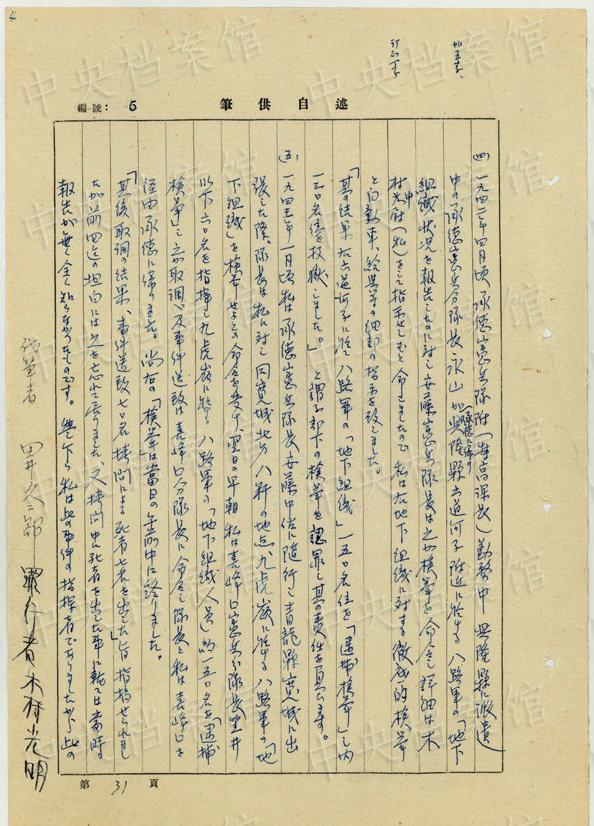 編號：5
述自供筆
(四) 一九四二年四月頃 承德憲兵隊附（特高課長）勤務中 興隆縣に派遣
中の承德憲兵分隊長 永山 が興隆縣六道河子附近に於ける 八路軍の「地下
組織」狀況を報告したのに對し 安藤憲兵隊長は之が檢擧を命令し 詳細は木
村中尉（私）をして指示せしむと命じましたので 私は右地下組織に對する徹底的檢擧
と自動車、給與等の細部の指示を致しました。
「其の結果 六道河子に於て 八路軍の「地下組織」一五〇名位を「逮捕檢擧」し 内
一三〇名位を投獄しました。」と 部下の檢擧を認罪し 其の責任を負ひます。
(五) 一九四三年一月頃 私は承德憲兵隊長安藤中佐に隨行し 青龍縣寬城に出
張した際、隊長は私に對し 同寬城北方八粁の地点 九虎嶺に於ける 八路軍の「地
下組織」を檢擧せよとの命令を受け、翌日の早朝 私は喜峰口憲兵分隊長
以下六〇名を指揮し 九虎嶺に於て 八路軍の「地下組織人員」約一五〇名を「逮捕
檢擧」し 之が取調、及事件送致は喜峰口分隊長に命令し 隊長と私は喜峰口を
經由 承德に歸りました。尚右の「檢擧」は當日の午前中に終りました。
「其後取調の結果、事件送致七〇名 拷問による死者七名を出した」旨 指摘せられまし
たが 前回迄の坦白には之を忘れて居りました、又拷問中死者を出した事に就ては當時
報告が無く全く知らなかったのです。然し乍ら 私は此の事件の指揮者でありました
代筆者
罪行者 木村光明
第 31 頁
中央档案馆